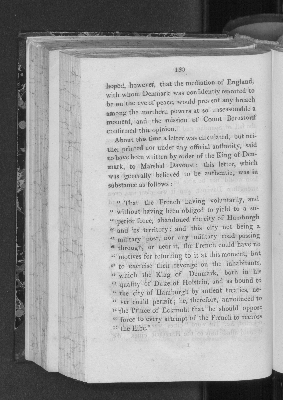 130
hoped, however, that the mediation of England,
with whom Denmark was confidently reported to
be on the eve of peace, would prevent any breach
among the northern powers at so unseasonable a
moment, and the mission of Count Bernstorf
confirmed this opinion.
About this time a letter was circulated, but nei-
ther printed nor under any official authority, said
to have been written by order of the King of Den-
mark, to Marshal Davoust: this letter, which
was generally believed to be authentic, was in
substance as follows:
" That the French having voluntarily, and
" without having been obliged to yield to a su-
" perior force, abandoned the city of Hamburgh
" and its territory; and this city not being a
" military post, nor any military road passing
" through, or near it, the French could have no
" motives for returning to it at this moment, but
" to exercise their revenge on the inhabitants,
" which the King of Denmark, both in his
" quality of Duke of Holstein, and as bound to
" the city of Hamburgh by antient treaties, ne-
" ver could permit; he, therefore, announced to
" the Prince of Ecmuhl, that he should oppose
" force to every attempt of the French to
" the Elbe."